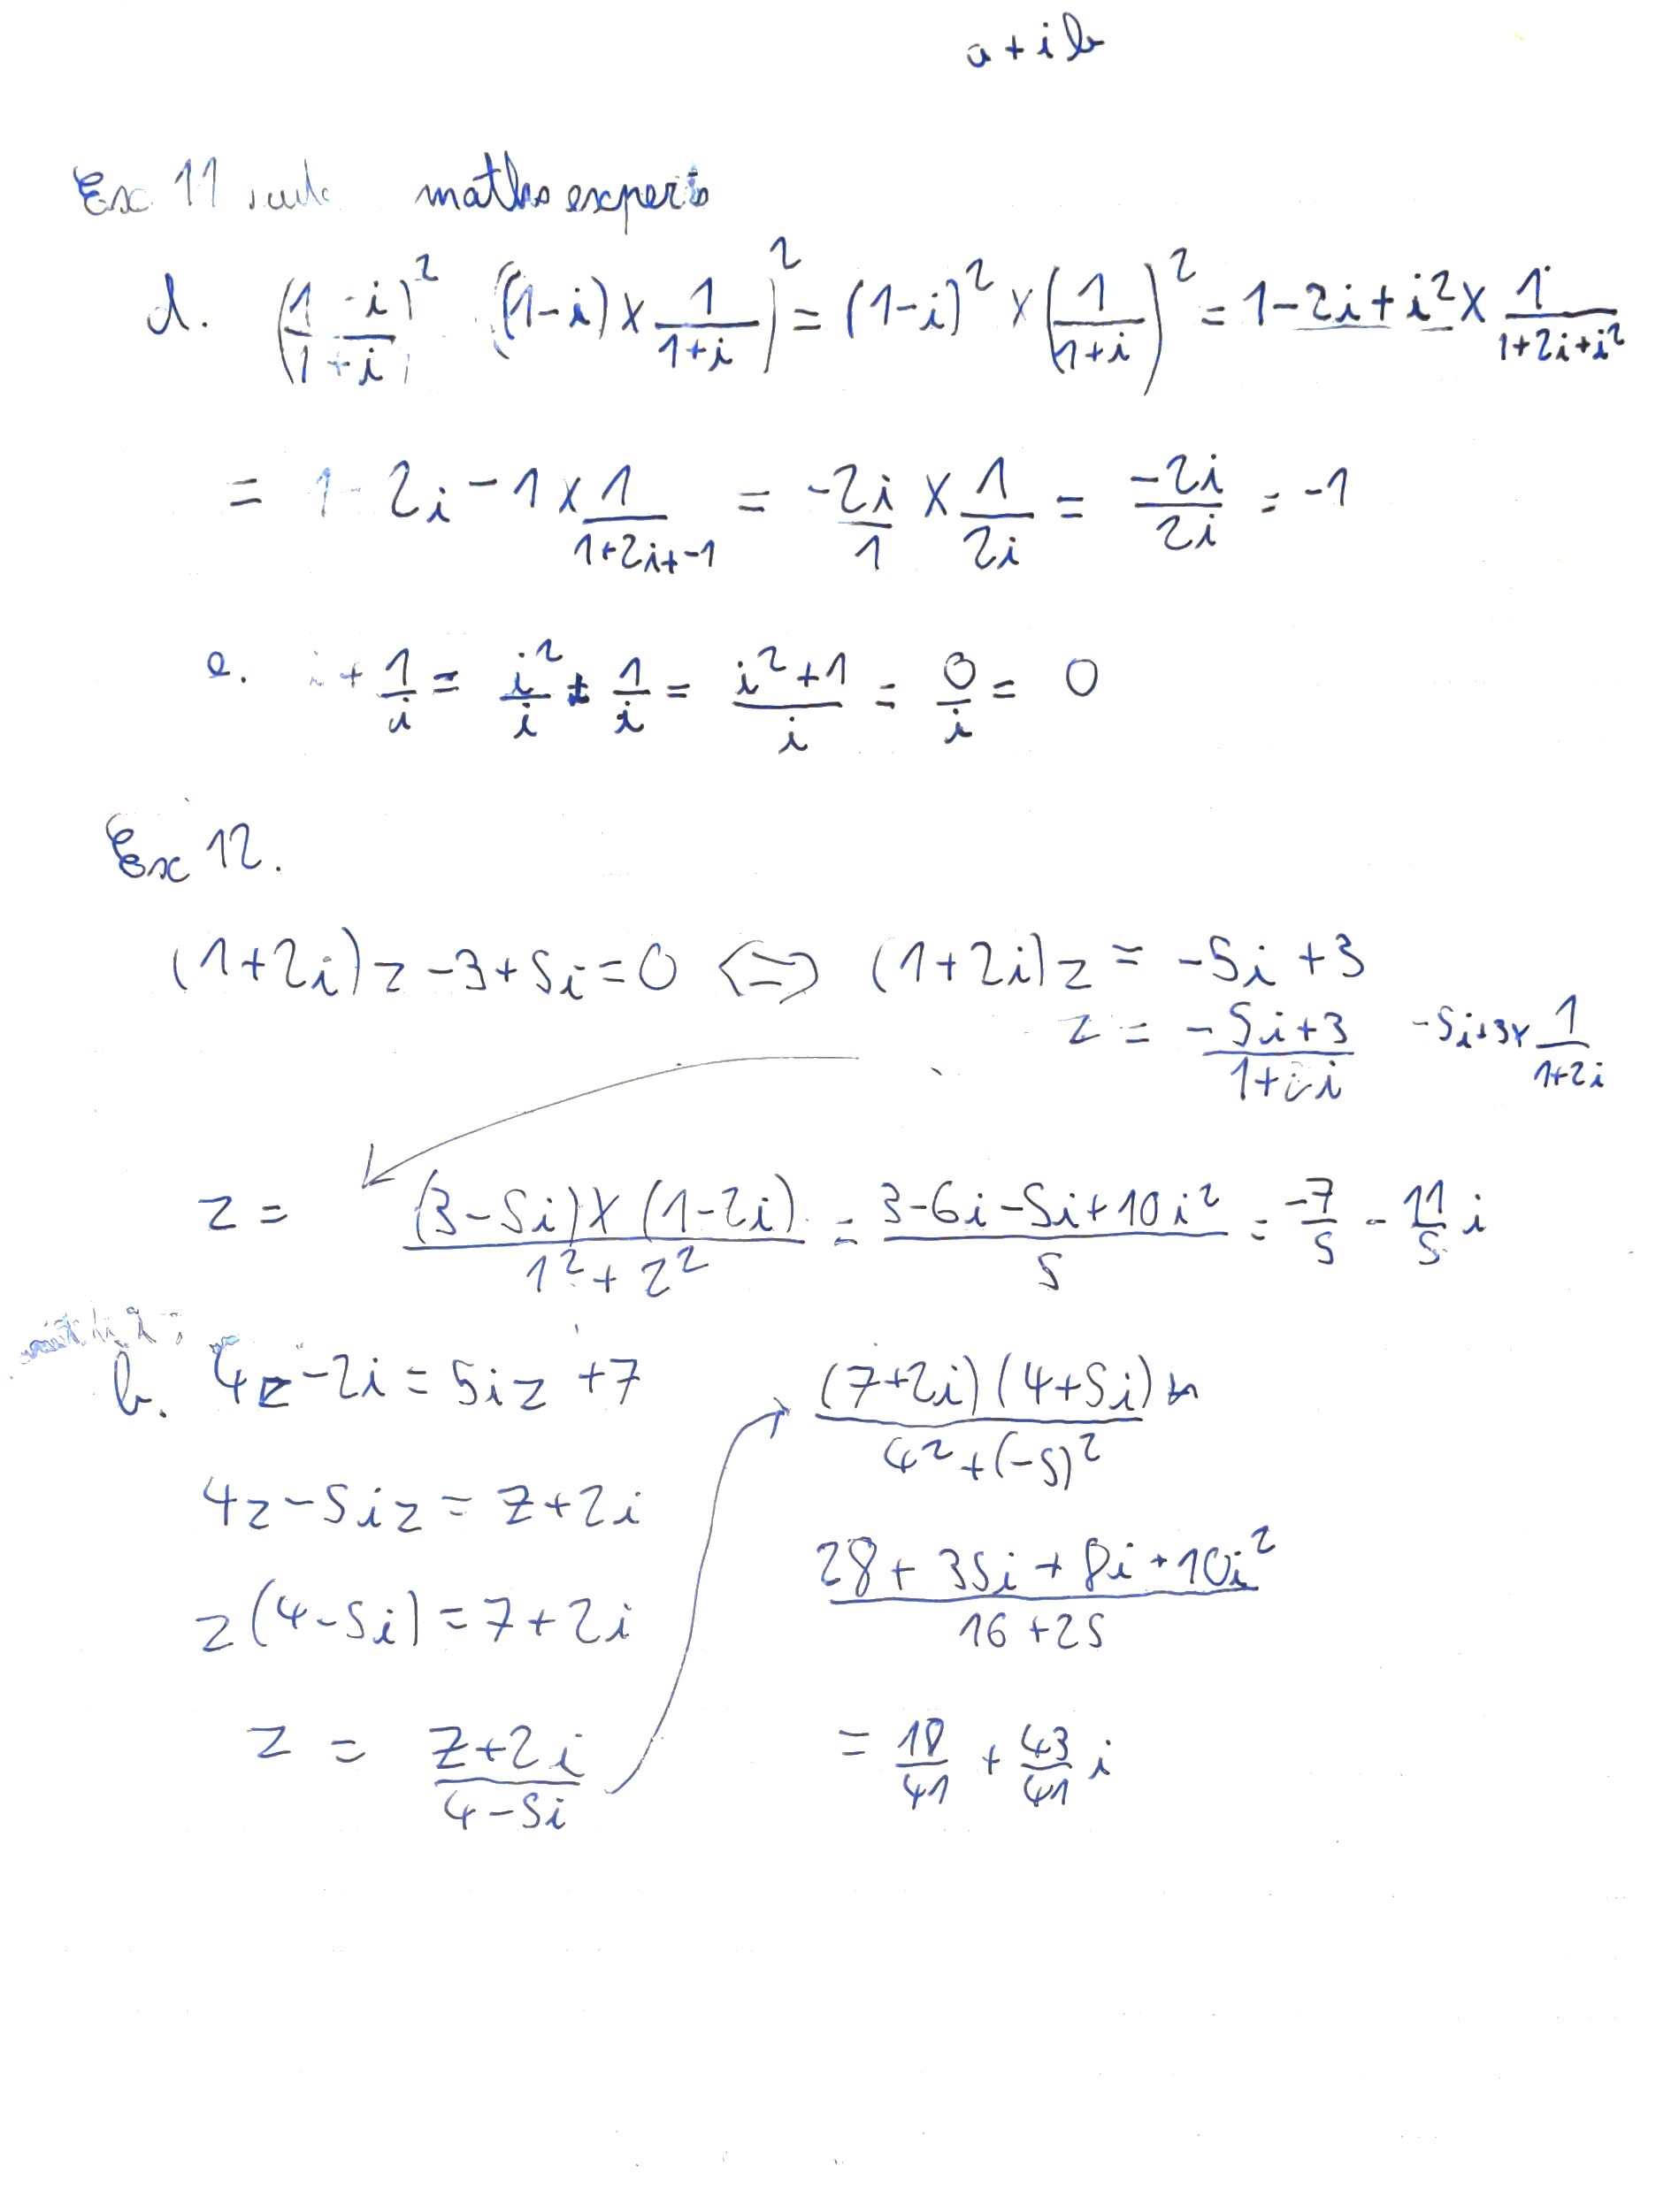 a+ib
Ex 11 maths experts
d. (1-i/1+i)² ((1-i)×1/1+i)² = (1-i)² × (1/1+i)² = 1-2i+i²× 1/1+2i+i²
= 1-2i-1×1/1+2i+-1 = -2i/1 × 1/2i = -2i/2i = -1
e. i+1/i = i²/i + 1/i = i²+1/i = 0/i = 0
Ex 12.
(1+2i)z-3+5i=0 <=> (1+2i)z = -5i+3
z = -5i+3/1+2i -5i+3×1/1+2i
z = (3-5i)×(1-2i)/1²+2² = 3-6i-5i+10i²/5 = -7/5 - 11/5 i
b. 4z-2i=5iz+7
4z-5iz=7+2i
z(4-5i)=7+2i
z = 7+2i/4-5i
(7+2i)(4+5i)/4²+(-5)²
28+35i+8i+10i²/16+25
= 18/41 + 43/41 i